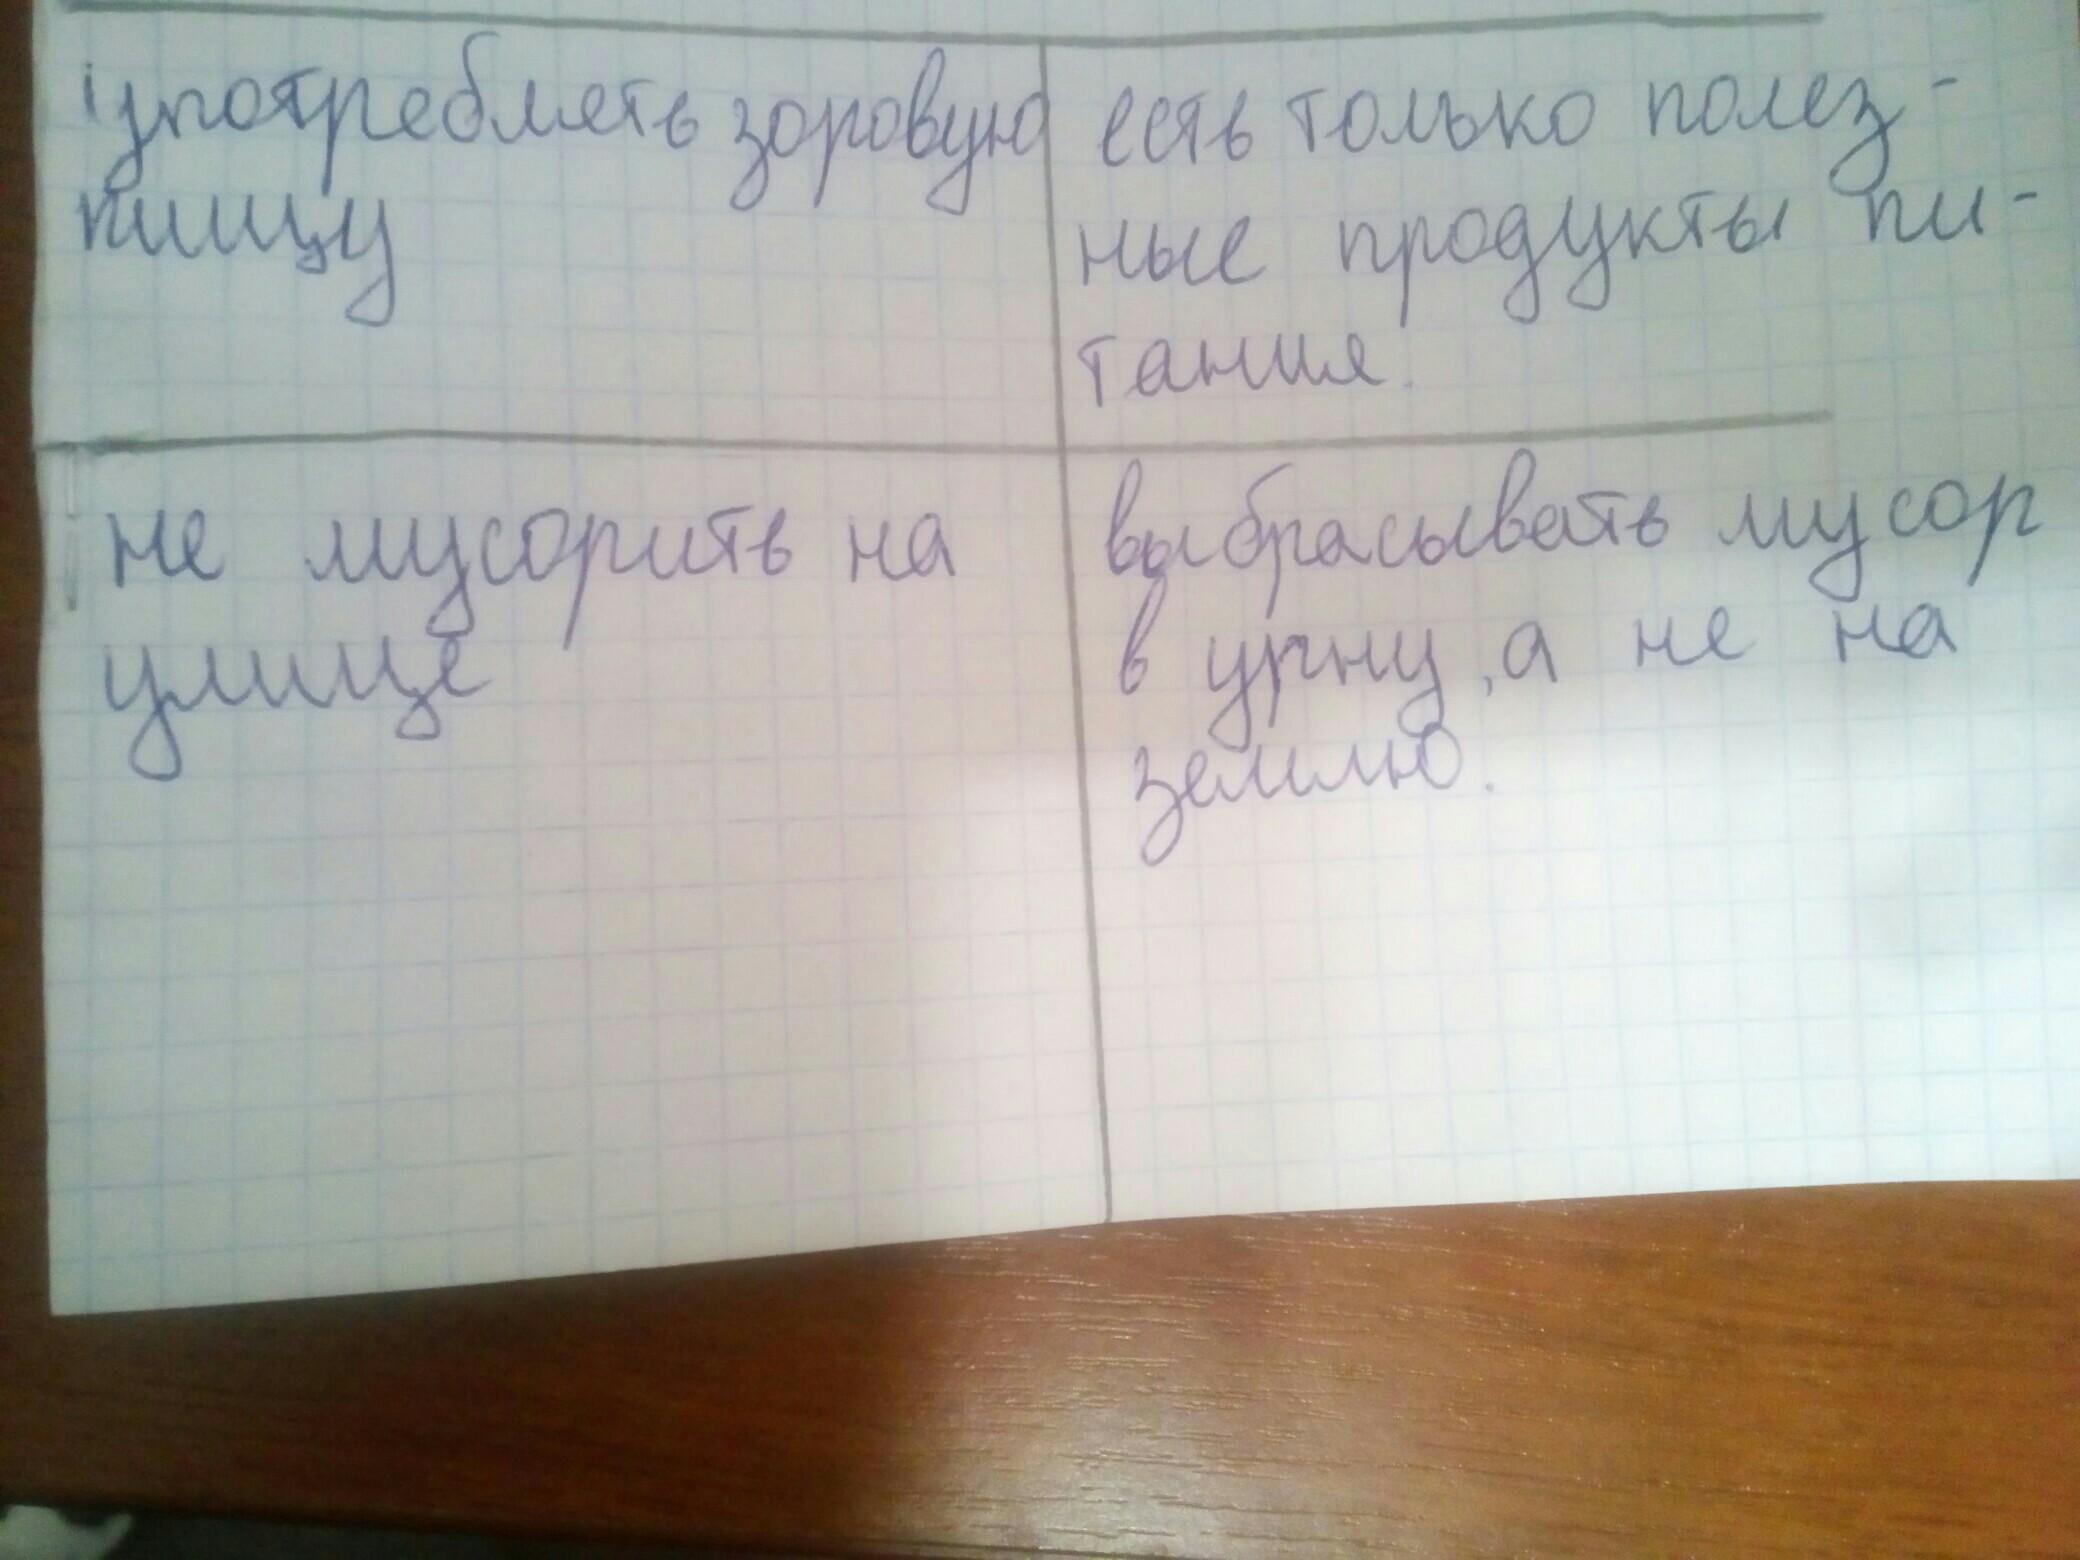 употреблять зоровую
пищу
есть только полез-
ные продукты пи-
тания.
не мусорить на
улице
выбрасывать мусор
в урну, а не на
землю.